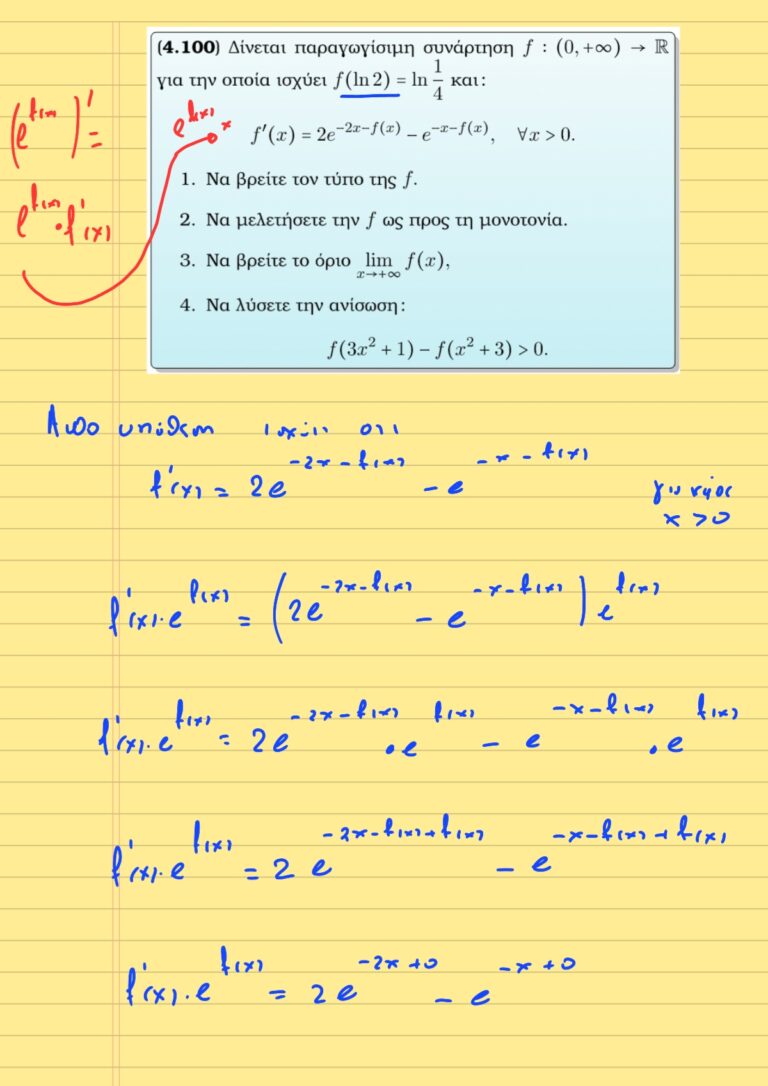 (4.100) Δίνεται παραγωγίσιμη συνάρτηση f : (0, +∞) → ℝ
για την οποία ισχύει f(ln 2) = ln 1/4 και:
f′(x) = 2e^{-2x-f(x)} − e^{-x-f(x)}, ∀x > 0.
1. Να βρείτε τον τύπο της f.
2. Να μελετήσετε την f ως προς τη μονοτονία.
3. Να βρείτε το όριο lim_{x→+∞} f(x),
4. Να λύσετε την ανίσωση:
f(3x² + 1) − f(x² + 3) > 0.
(e^{f(x)})′ =
e^{f(x)} · f′(x)
e^{f(x)}
Απο υπόθεση ισχύει οτι
f′(x) = 2e^{-2x-f(x)} − e^{-x-f(x)} για κάθε
x > 0
f′(x) · e^{f(x)} = (2e^{-2x-f(x)} − e^{-x-f(x)}) e^{f(x)}
f′(x) · e^{f(x)} = 2e^{-2x-f(x)} · e^{f(x)} − e^{-x-f(x)} · e^{f(x)}
f′(x) · e^{f(x)} = 2e^{-2x-f(x)+f(x)} − e^{-x-f(x)+f(x)}
f′(x) · e^{f(x)} = 2e^{-2x+0} − e^{-x+0}